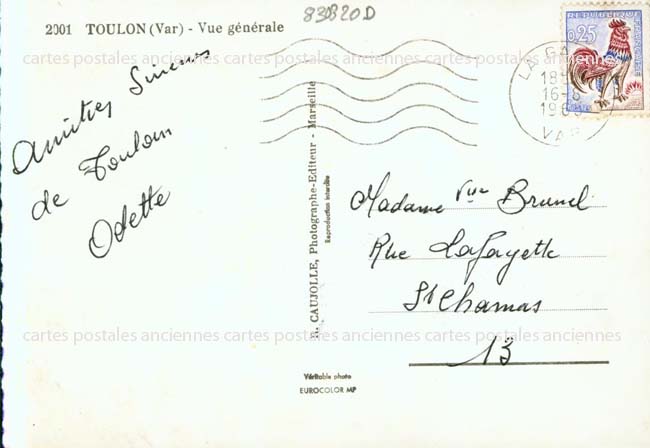 83082OD
2001 TOULON (Var) - Vue générale
cartes postales anciennes cartes postales anciennes cartes postales anciennes
Amitiés
de Toulon
Odette
R. CAUJOLLE, Photographe-Editeur - Marseille
Reproduction interdite
REPUBLIQUE FRANCAISE
0,25
LA
18
16-8
VAR
Madame Vve Brunel
Rue Lafayette
St Chamas
13
cartes postales anciennes cartes postales anciennes cartes postales anciennes
Véritable photo
EUROCOLOR MP